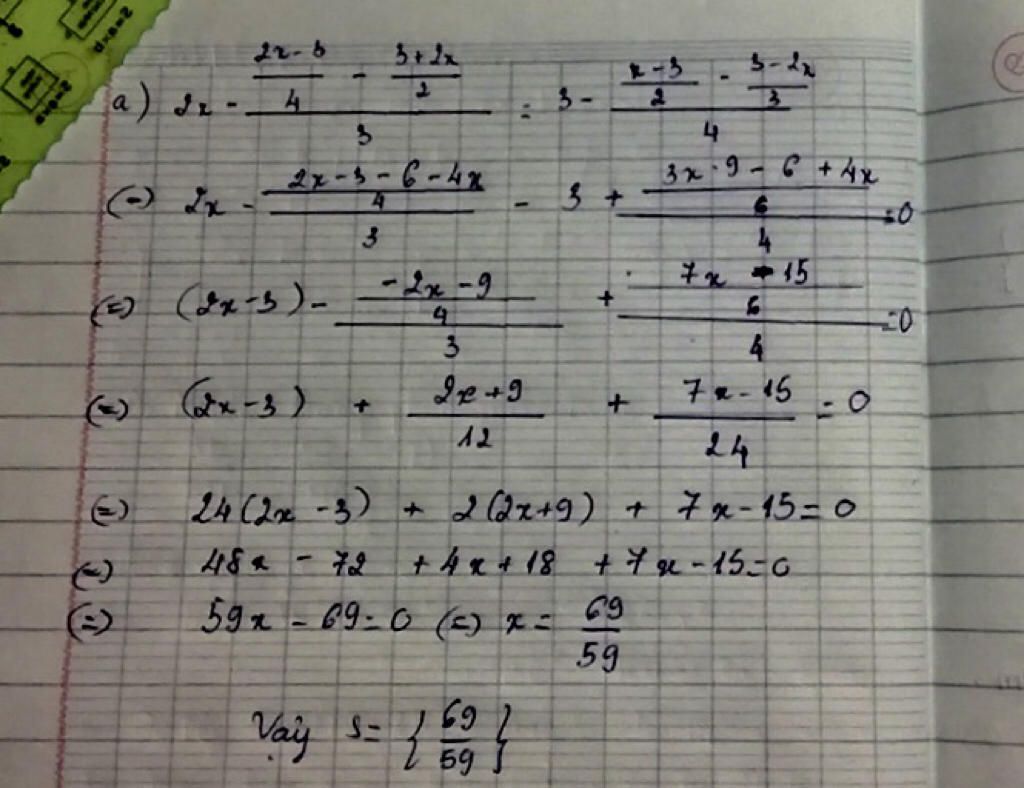 a) 2x - ((2x-3)/4 - (3+2x)/2)/3 = 3 - ((x-3)/2 - (3-2x)/3)/4
(=) 2x - ((2x-3-6-4x)/4)/3 - 3 + ((3x-9-6+4x)/6)/4 = 0
(=) (2x-3) - ((-2x-9)/4)/3 + ((7x-15)/6)/4 = 0
(=) (2x-3) + (2x+9)/12 + (7x-15)/24 = 0
(=) 24(2x-3) + 2(2x+9) + 7x-15=0
(=) 48x - 72 + 4x+18 + 7x-15=0
(=) 59x - 69=0 (=) x = 69/59
Vậy S= {69/59}